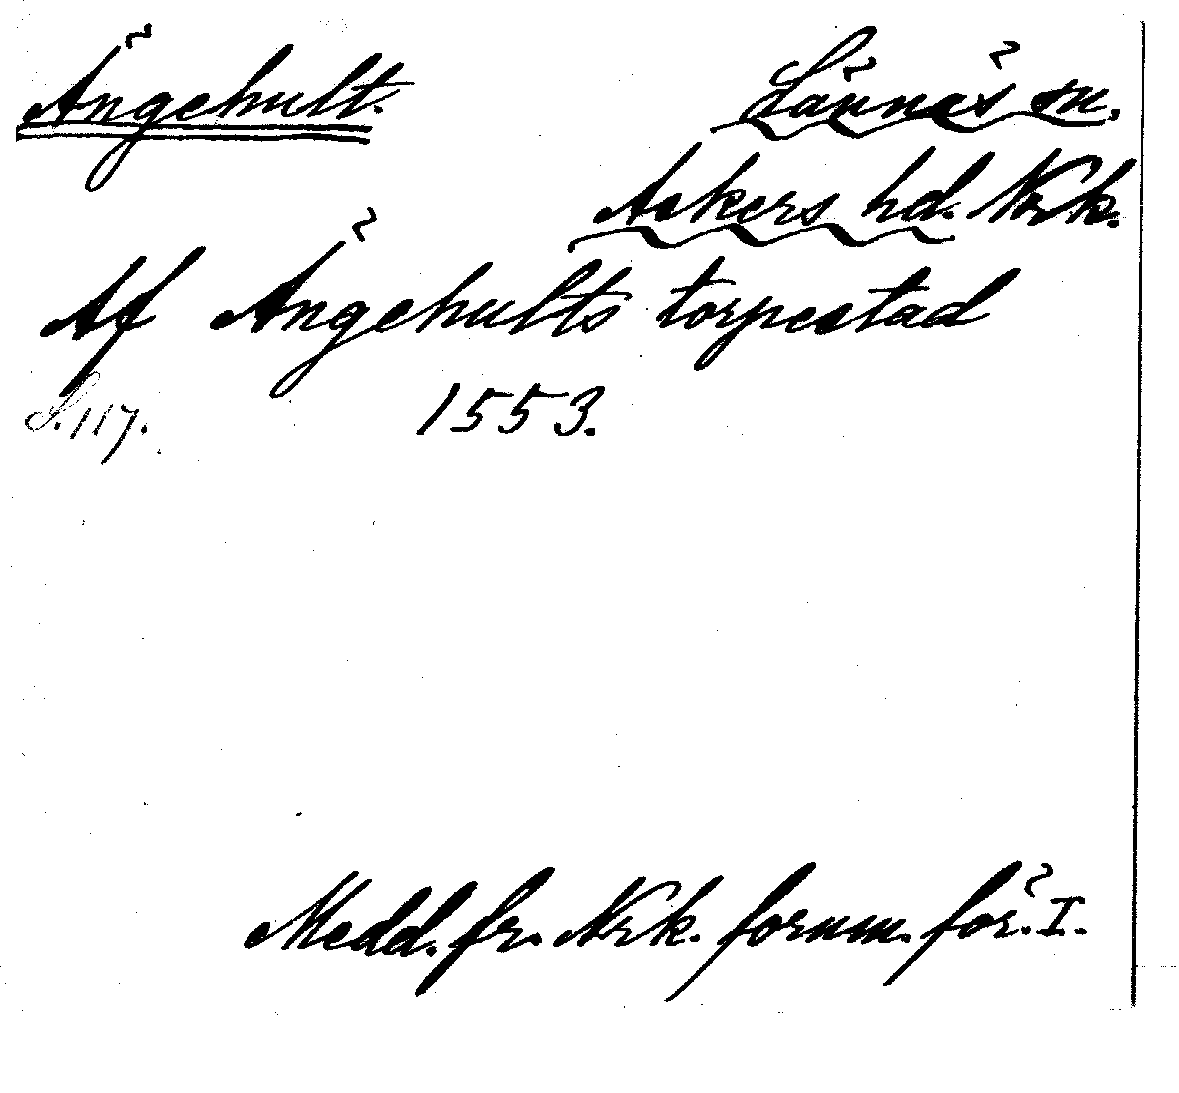 Ängehult. Lännäs sn.
Askers hd. Nrk.
Af Ängehults torpestad
S. 117. 1553.
Medd. fr. Nrk. fornm. för. I.